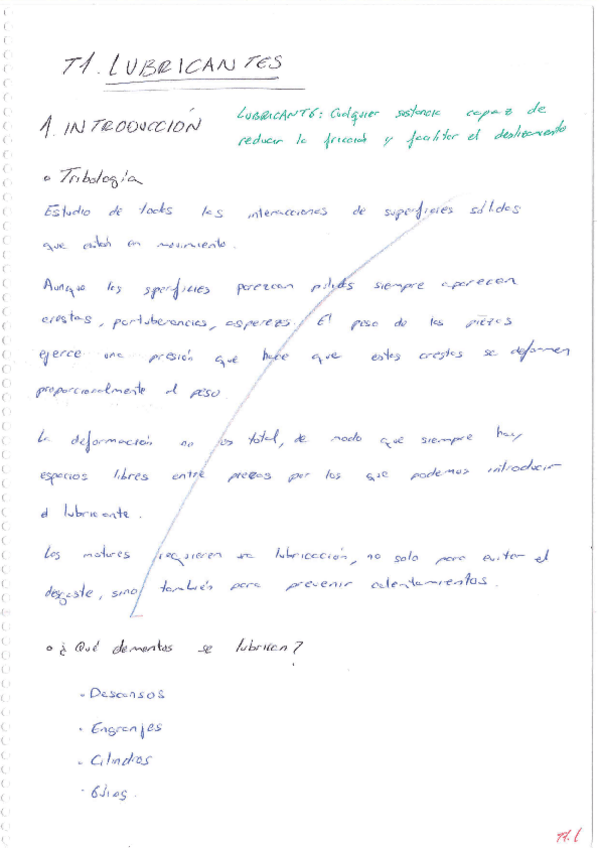 T1. LUBRICANTES
1. INTRODUCCIÓN
LUBRICANTE: Cualquier sustancia capaz de
reducir la fricción y facilitar el deslizamiento
• Tribología
Estudio de todas las interacciones de superficies sólidas
que están en movimiento.
Aunque las superficies parezcan pulidas siempre aparecen
crestas, portuberancias, asperezas. El peso de las piezas
ejerce una presión que hace que estas crestas se deformen
proporcionalmente al peso.
La deformación no es total, de modo que siempre hay
espacios libres entre piezas por los que podemos introducir
el lubricante.
Los motores requieren su lubricación, no solo para evitar el
desgaste, sino también para prevenir calentamientos.
• ¿Qué elementos se lubrican?
- Descansos
- Engranjes
- Cilindros
- Otros.
T1.1